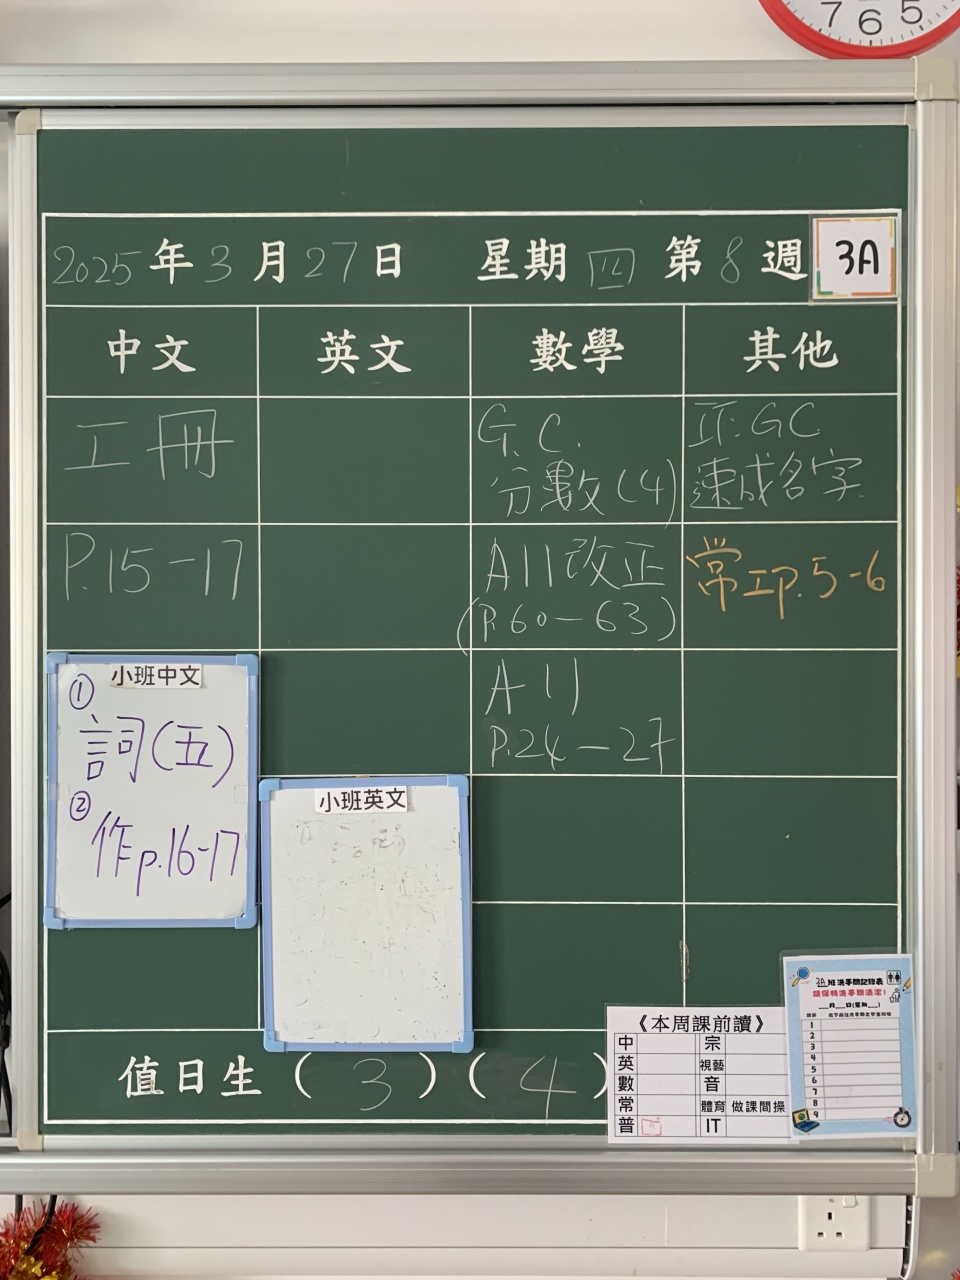 7 6 5
2025年3月27日 星期四 第8週 3A
中文 英文 數學 其他
工冊
G.C.
分數(4)
IT: GC
速成名字
P.15-17
A11改正
(P.60-63)
常工p.5-6
小班中文
① 詞(五)
② 作p.16-17
A11
P.24-27
小班英文
值日生(3)(4)
《本周課前讀》
中 宗
英 視藝
數 音
常 體育 做課間操
普 IT
3A班洗手間記錄表
請保持洗手間清潔!
___月___日(星期___)
1
2
3
4
5
6
7
8
9